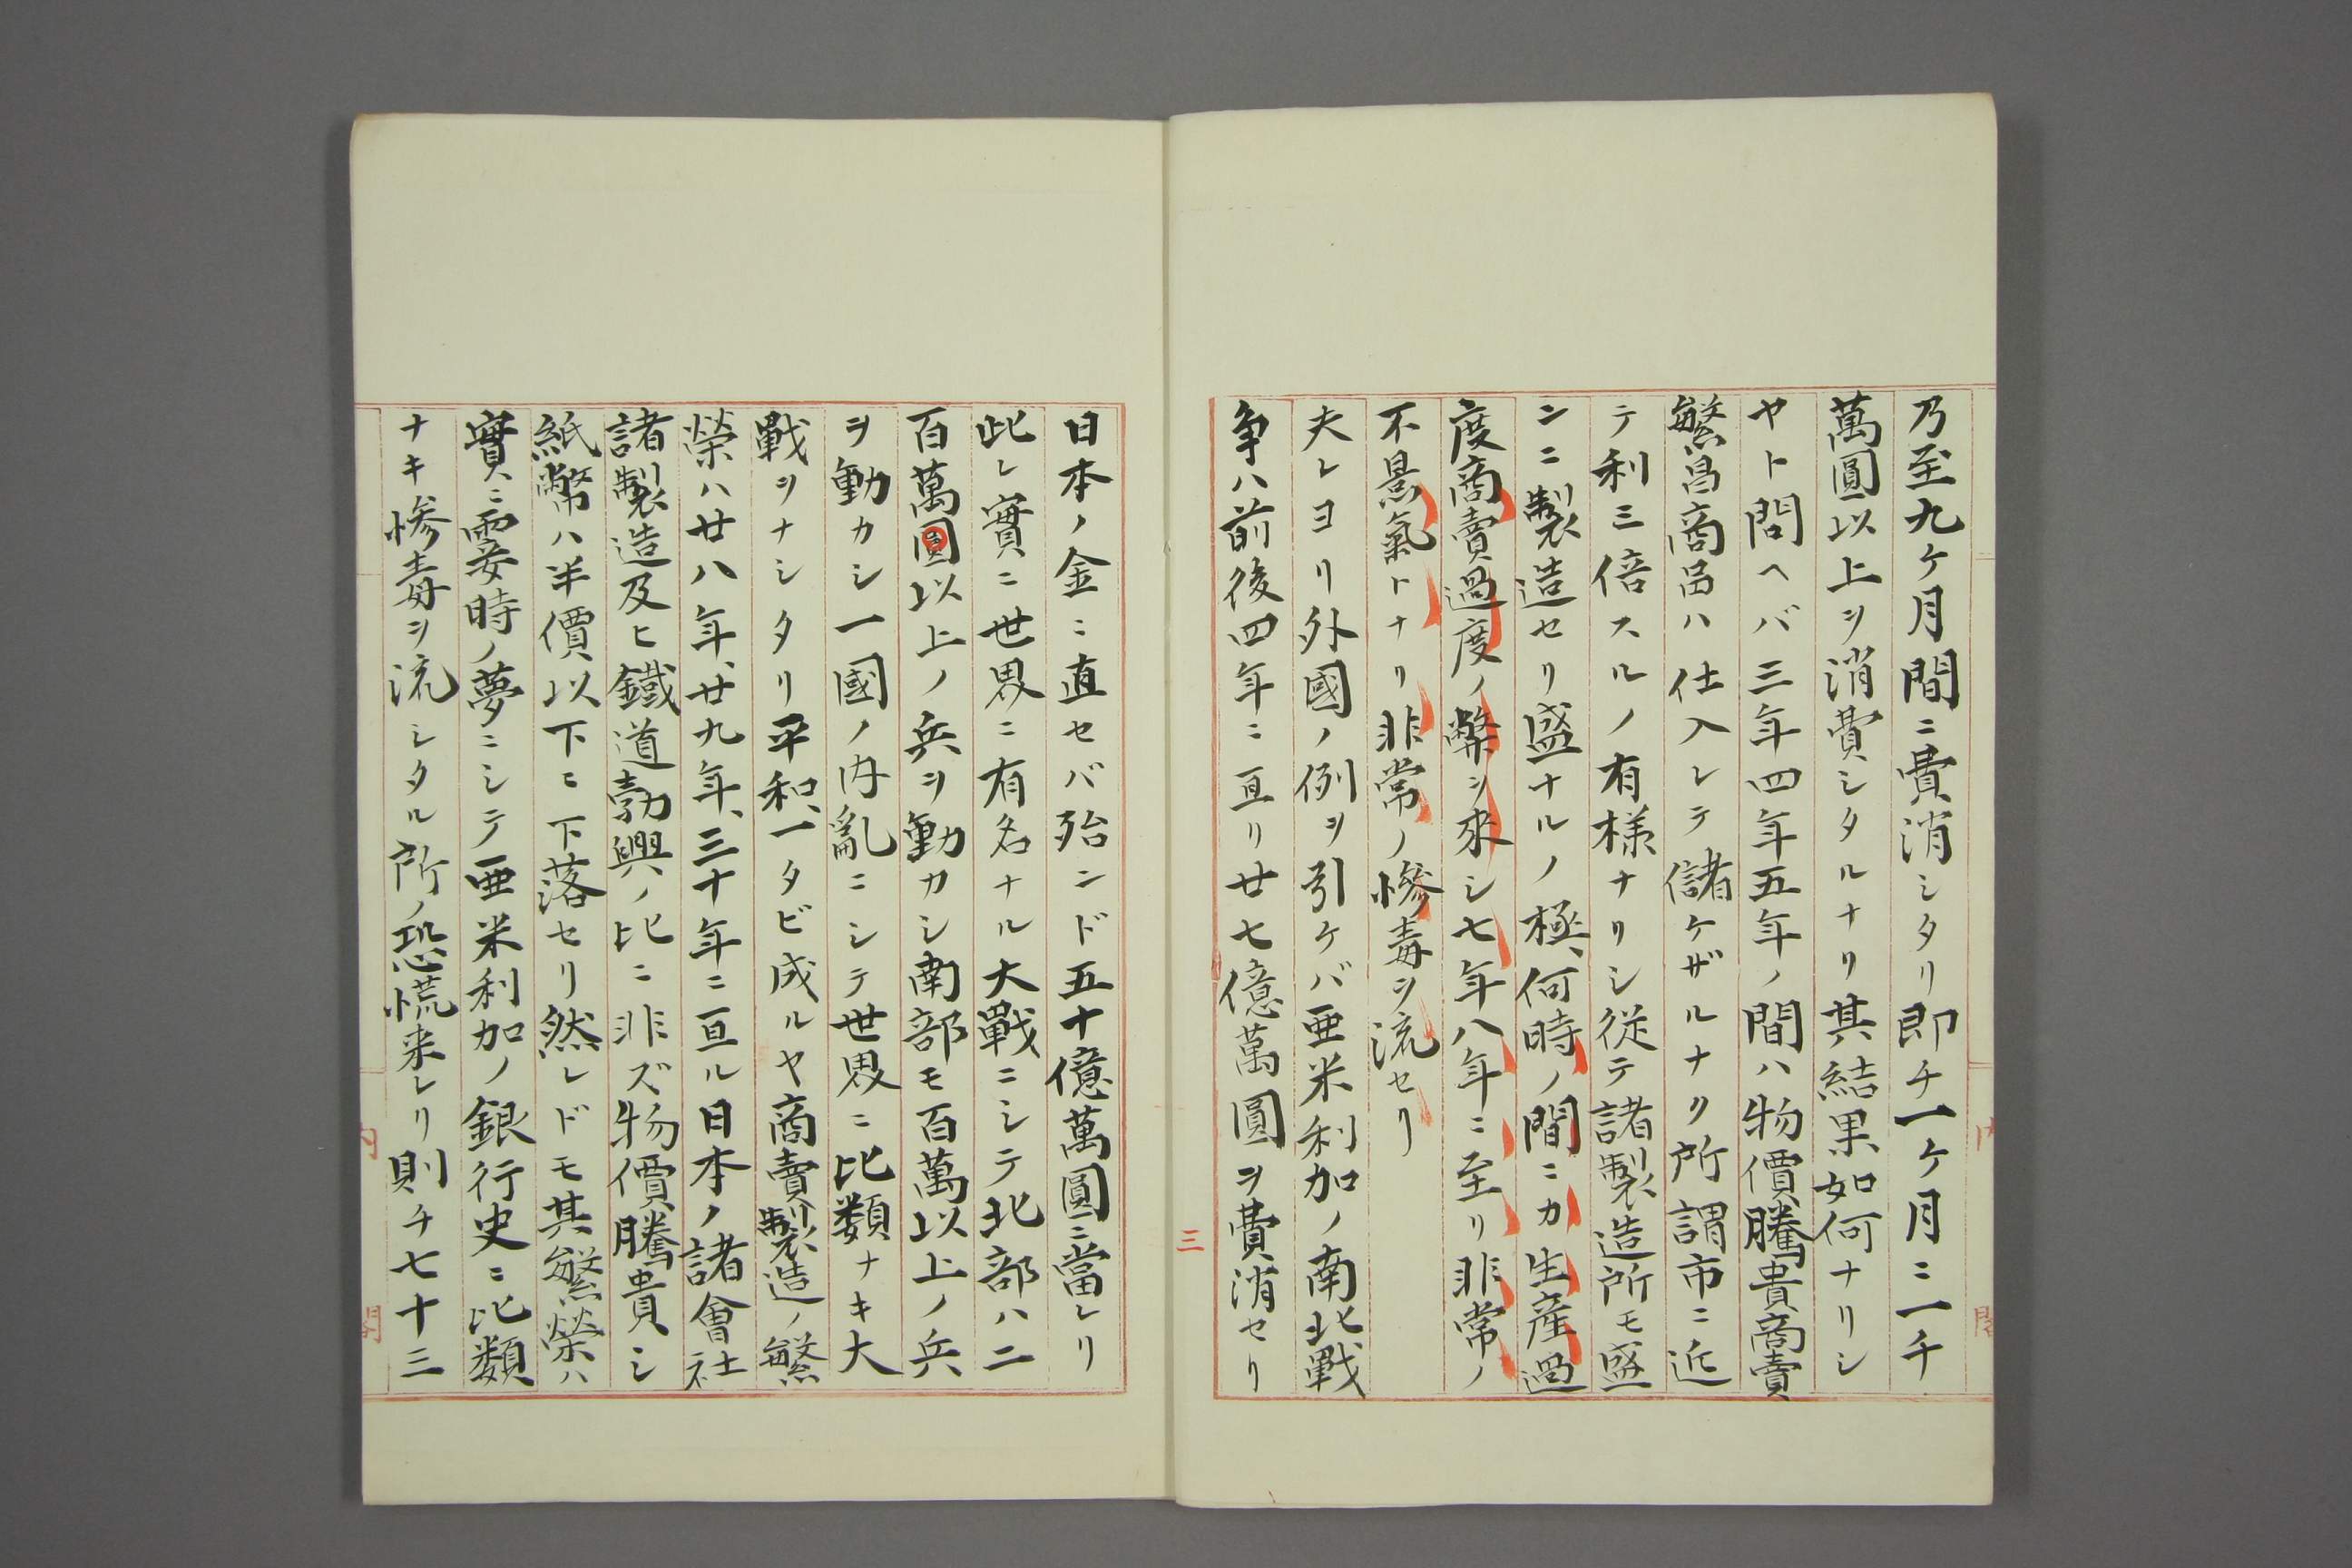 乃至九ヶ月間ニ費消シタリ即チ一ヶ月ニ一千
萬圓以上ヲ消費シタルナリ其結果如何ナリシ
ヤト問ヘバ三年四年五年ノ間ハ物價騰貴商賣
繁昌商品ハ仕入レテ儲ケザルナク所謂市ニ近
テ利三倍スルノ有様ナリシ従テ諸製造所モ盛
ンニ製造セリ盛ナルノ極、何時ノ間ニカ生産過
度商賣過度ノ弊ヲ來シ七年八年ニ至リ非常ノ
不景氣トナリ非常ノ慘毒ヲ流セリ
夫レヨリ外國ノ例ヲ引ケバ亜米利加ノ南北戰
争ハ前後四年ニ亘リ廿七億萬圓ヲ費消セリ
三
日本ノ金ニ直セバ殆ンド五十億萬圓ニ當レリ
此レ實ニ世界ニ有名ナル大戰ニシテ北部ハ二
百萬圓以上ノ兵ヲ動カシ南部モ百萬以上ノ兵
ヲ動カシ一國ノ内亂ニシテ世界ニ比類ナキ大
戰ヲナシタリ平和一タビ成ルヤ商賣製造ノ繁
榮ハ廿八年、廿九年、三十年ニ亘ル日本ノ諸會社
諸製造及ヒ鐵道勃興ノ比ニ非ズ物價騰貴シ
紙幣ハ半價以下ニ下落セリ然レドモ其繁榮ハ
實ニ霎時ノ夢ニシテ亜米利加ノ銀行史ニ比類
ナキ慘毒ヲ流シタル所ノ恐慌来レリ則チ七十三
内
閣